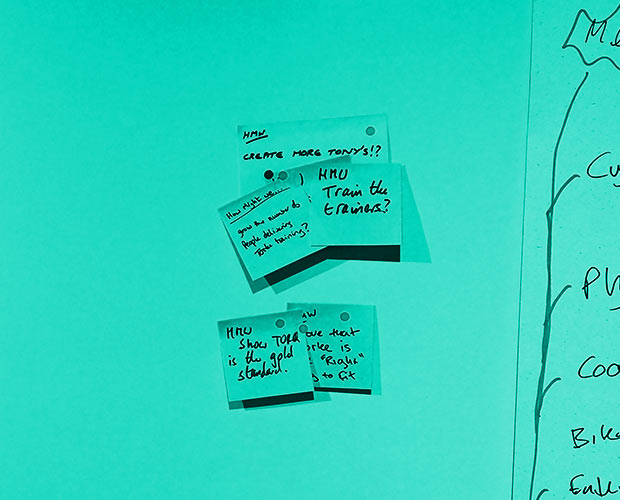 HMW
CREATE MORE TONY'S!?
How Might We
grow the number of
People delivering
Torke training?
HMW
Train the
trainers?
HMW
Show TORQ
is the gold
standard.
that
is
"Right"
to fit
Me
Cy
Ph
Coo
Bik